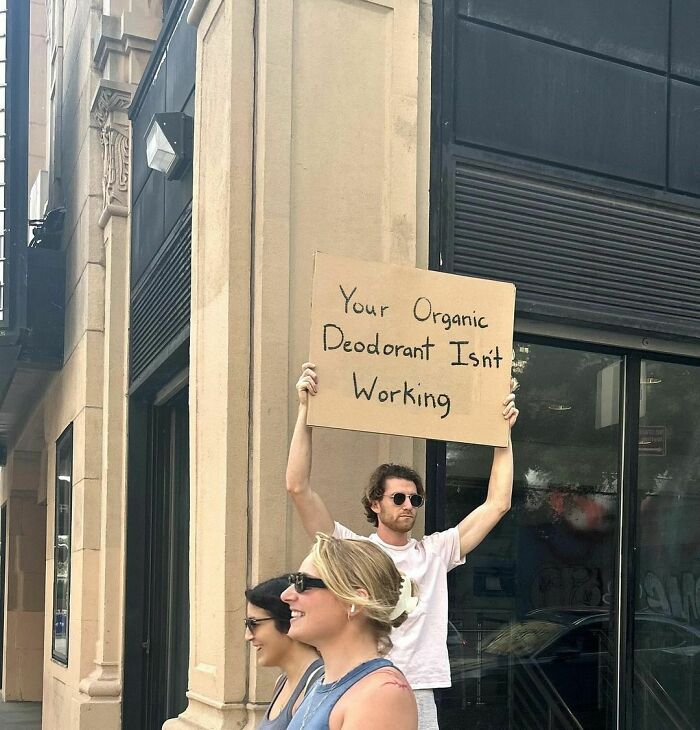 Your Organic
Deodorant Isn't
Working